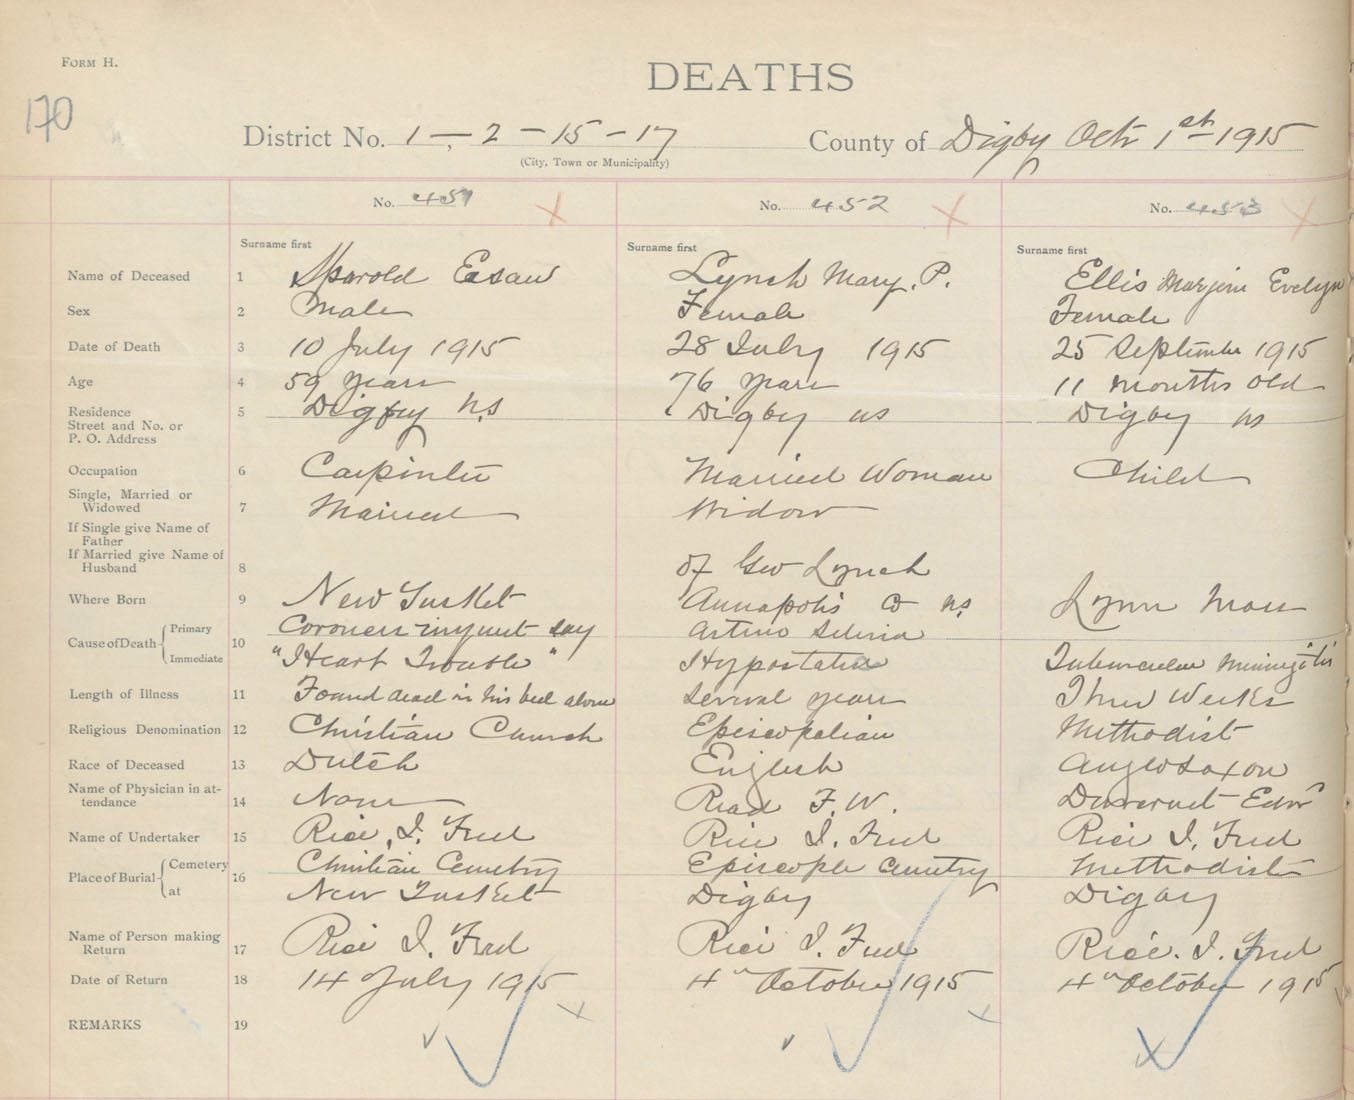 FORM H.
DEATHS
170
District No. 1 - 2 - 15 - 17 County of Digby Oct 1st 1915
(City, Town or Municipality)
No. 451 No. 452 No. 453
Surname first Surname first Surname first
Name of Deceased 1 Harold Esaw Lynch Mary. P. Ellis Marjorie Evelyn
Sex 2 Male Female Female
Date of Death 3 10 July 1915 28 July 1915 25 September 1915
Age 4 59 years 76 years 11 months old
Residence 5 Digby N.S Digby NS Digby NS
Street and No. or
P. O. Address
Occupation 6 Carpinter Married Woman Child
Single, Married or
Widowed 7 Married Widow
If Single give Name of
Father
If Married give Name of
Husband 8 of Geo Lynch
Where Born 9 New Tusket Annapolis Co NS Lynn Mass
Cause of Death Primary 10 Coroners inquest say
Immediate "Heart Trouble" Hypostatic Tubercular Miningitis
Length of Illness 11 Found dead in his bed alone several years Three Weeks
Religious Denomination 12 Christian Church Episcopalian Methodist
Race of Deceased 13 Dutch English Anglosaxon
Name of Physician in at-
tendance 14 None Read F. W. Duvernet Edw
Name of Undertaker 15 Rice, I. Fred Rice I. Fred Rice I. Fred
Place of Burial Cemetery 16 Christian Cemetry Episcople Cemetry Methodist
at New Tusket Digby Digby
Name of Person making
Return 17 Rice I. Fred Rice I. Fred Rice. I. Fred
Date of Return 18 14 July 1915 4th October 1915 4th October 1915
REMARKS 19